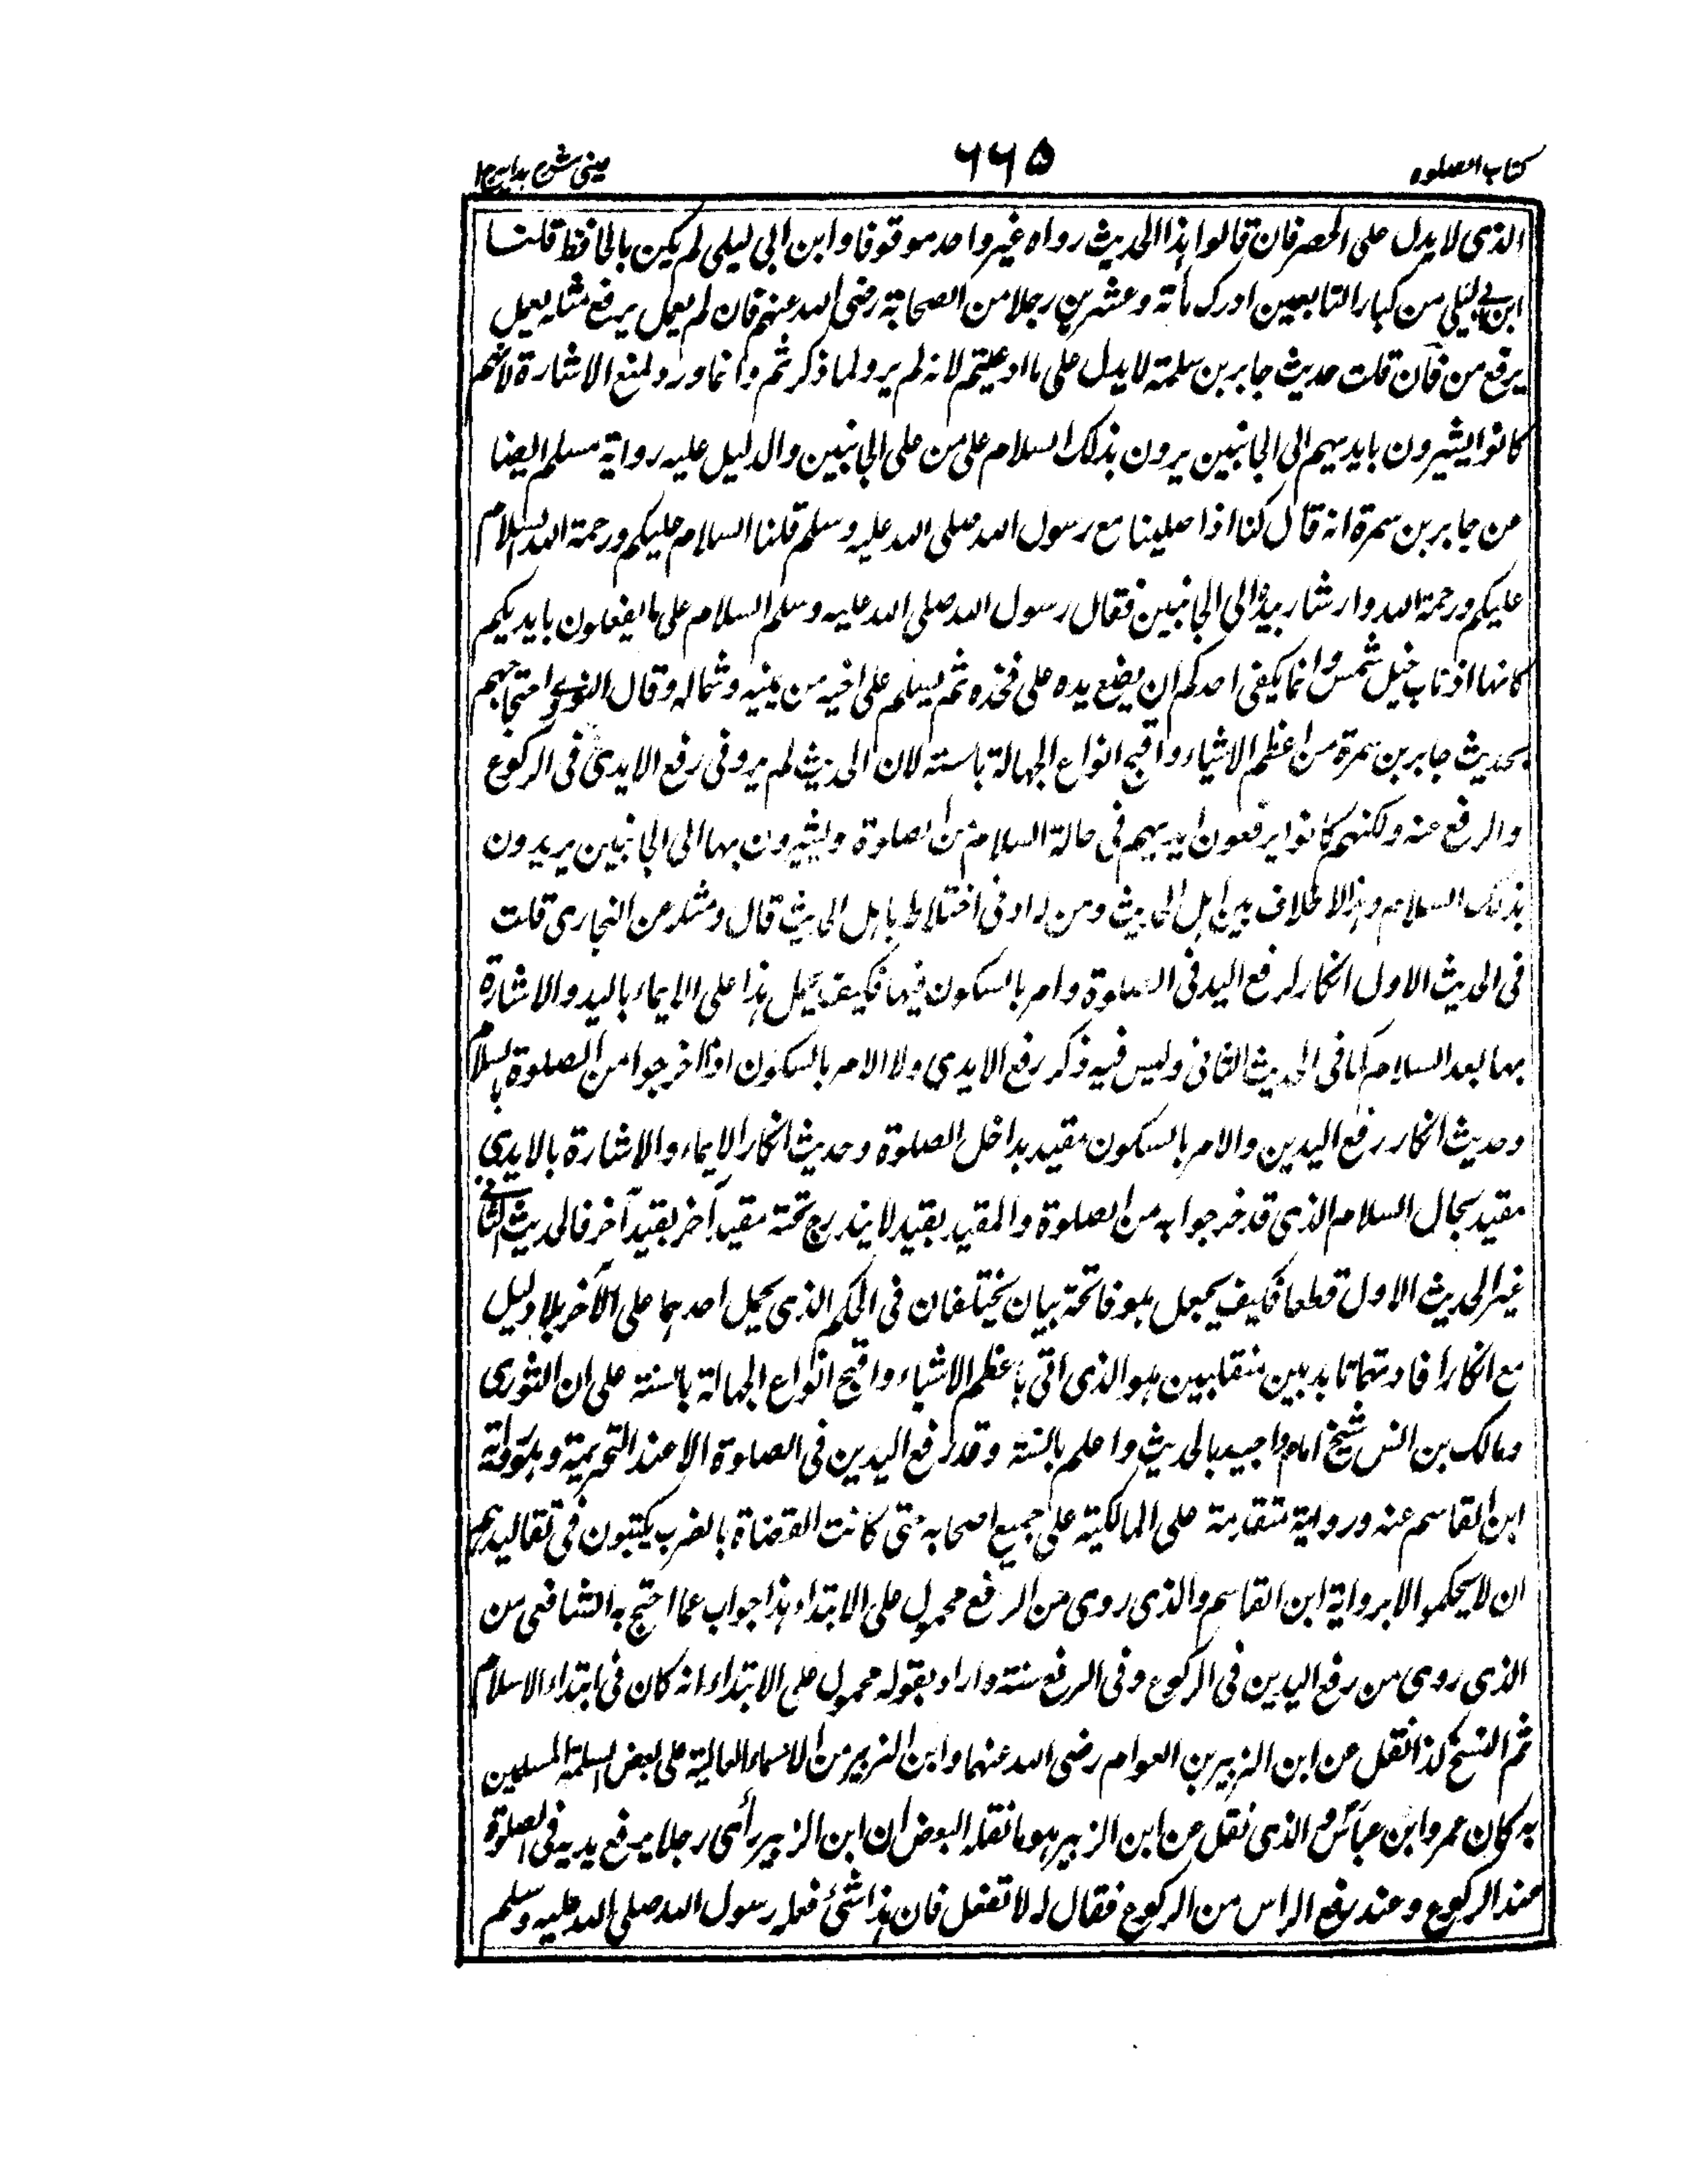 كتاب الصلوه
٦٦٥
عینی شرح هدایه ج۱
الذی لا یدل علی الحصر فان قالوا هذا الحدیث رواه غیر واحد موقوفا وابن ابی لیلی لم یکن بالحافظ قلنا
ابن ابی لیلی من کبار التابعین ادرک مأته وعشرین رجلا من الصحابة رضی الله عنهم فان لم یعمل یرفع مثله یعمل
یرفع من فان قلت حدیث جابر بن سلمة لا یدل علی ما ادعیتم لانه لم یرو لما ذکر ثم وانما ورد لمنع الاشارة لانهم
کانوا یشیرون بایدیهم الی الجانبین یرون بذلک السلام علی من علی الجانبین والدلیل علیه روایة مسلم ایضا
عن جابر بن سمرة انه قال کنا اذا صلینا مع رسول الله صلی الله علیه وسلم قلنا السلام علیکم ورحمة الله السلام
علیکم ورحمة الله واشار بیده الی الجانبین فقال رسول الله صلی الله علیه وسلم السلام علی ما یفعلون بایدیکم
کانها اذناب خیل شمس وانما یکفی احدکم ان یضع یده علی فخذه ثم یسلم علی اخیه من یمینه وشماله وقال النووی احتجاجهم
بحدیث جابر بن سمرة من اعظم الاشیاء واقبح انواع الجهالة بالسنه لان الحدیث لم یرو فی رفع الایدی فی الرکوع
والرفع عنه ولکنهم کانوا یرفعون ایدیهم فی حالة السلام من الصلوة ویشیرون بها الی الجانبین یریدون
بذلک السلام وهذا لا خلاف بین اهل الحدیث ومن له ادنی اختلاط باهل الحدیث قال ومثله عن البخاری قلت
فی الحدیث الاول انکار لرفع الید فی الصلوة وامر بالسکون فیها فکیف یحمل هذا علی الایماء بالید والاشارة
بها بعد السلام کما فی الحدیث الثانی ولیس فیه ذکر رفع الایدی ولا الامر بالسکون اذا خرجوا من الصلوة بالسلام
وحدیث انکار رفع الیدین والامر بالسکون مقید بداخل الصلوة وحدیث انکار الایماء والاشارة بالایدی
مقید بحال السلام الذی قد خرجوا به من الصلوة والمقید بقید لا یندرج تحته مقید آخر بقید آخر فالحدیث الثانی
غیر الحدیث الاول قطعا فکیف یجعل هو فاتحة بیان یختلفان فی الحکم الذی یحمل احدهما علی الآخر بلا دلیل
مع انکار افادتهما تابدیین منقلبین هو الذی اتی باعظم الاشیاء واقبح انواع الجهالة بالسنه علی ان الثوری
ومالک بن انس شیخ امام واجیبد بالحدیث واعلم بالسنة وقد رفع الیدین فی الصلوة الا عند التحریمة وهو روایة
ابن القاسم عنه وروایة متقدمة علی المالکیة علی جمیع اصحابه حتی کانت القضاة بالغرب یکتبون فی تقالیدهم
ان لا یحکموا الا بروایة ابن القاسم والذی روی من الرفع محمول علی الابتداء هذا جواب عما احتج به الشافعی من
الذی روی من رفع الیدین فی الرکوع وفی الرفع سنة واراد بقوله محمول علی الابتداء انه کان فی ابتداء الاسلام
ثم انتسخ کذا نقل عن ابن الزبیر بن العوام رضی الله عنهما وابن الزبیر من الاسماء الغالبة علی بعض المسلمین
به کان عمر وابن عباس والذی نقل عن ابن الزبیر هو ما نقله البعض ان ابن الزبیر رأی رجلا یرفع یدیه فی الصلوة
عند الرکوع وعند رفع الراس من الرکوع فقال له لا تفعل فان هذا شیٔ فعله رسول الله صلی الله علیه وسلم